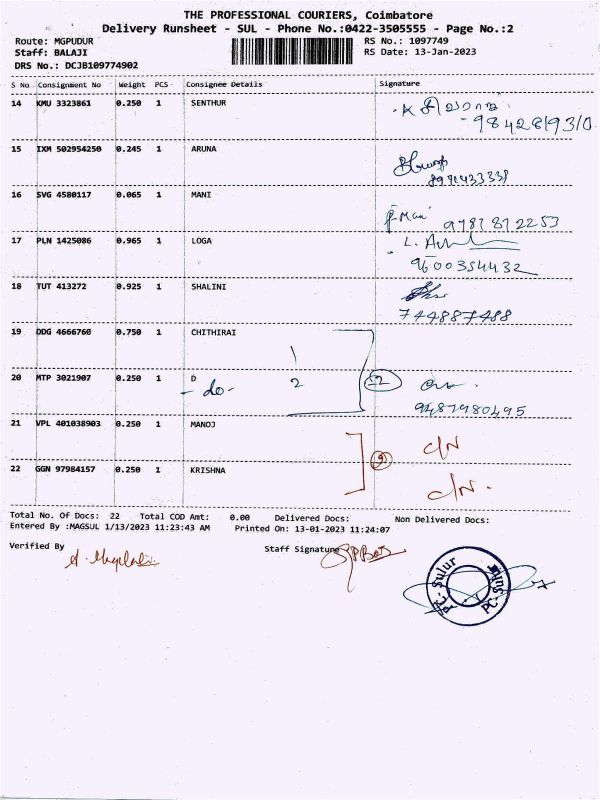 THE PROFESSIONAL COURIERS, Coimbatore
Delivery Runsheet - SUL - Phone No.:0422-3505555 - Page No.:2
Route: MGPUDUR RS No.: 1097749
Staff: BALAJI RS Date: 13-Jan-2023
DRS No.: DCJB109774902
S No Consignment No Weight PCS Consignee Details Signature
14 KMU 3323861 0.250 1 SENTHUR
9842819310
15 IXM 502954250 0.245 1 ARUNA
16 SVG 4580117 0.065 1 MANI
P. Mani 9787872253
17 PLN 1425086 0.965 1 LOGA
9600354432
18 TUT 413272 0.925 1 SHALINI
7448877488
19 DDG 4666760 0.750 1 CHITHIRAI
1
20 MTP 3021907 0.250 1 D
- do - 2
9487980495
21 VPL 401038903 0.250 1 MANOJ
C/N
22 GGN 97984157 0.250 1 KRISHNA
C/N.
Total No. Of Docs: 22 Total COD Amt: 0.00 Delivered Docs: Non Delivered Docs:
Entered By :MAGSUL 1/13/2023 11:23:43 AM Printed On: 13-01-2023 11:24:07
Verified By Staff Signature
PC-Sulur PC-Sulur